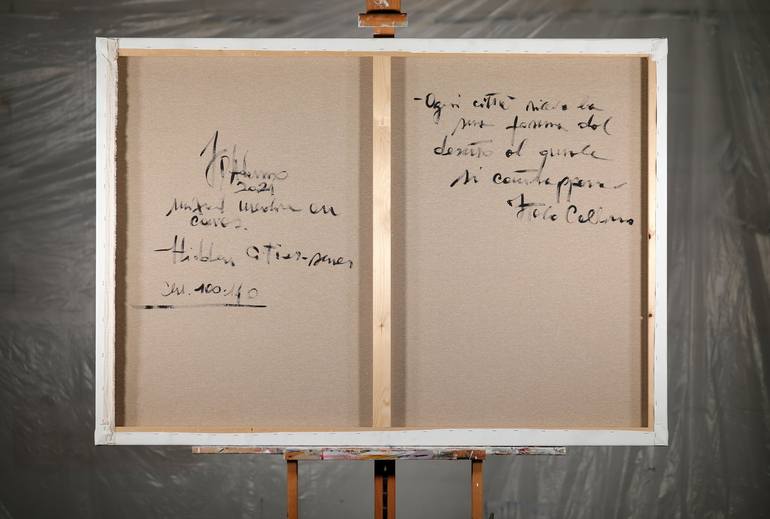 2021
mixed media on
canvas.
Hidden Cities-series
cm. 100.140
-Ogni città riceve la
sua forma dal
deserto al quale
si contrappone
Italo Calvino